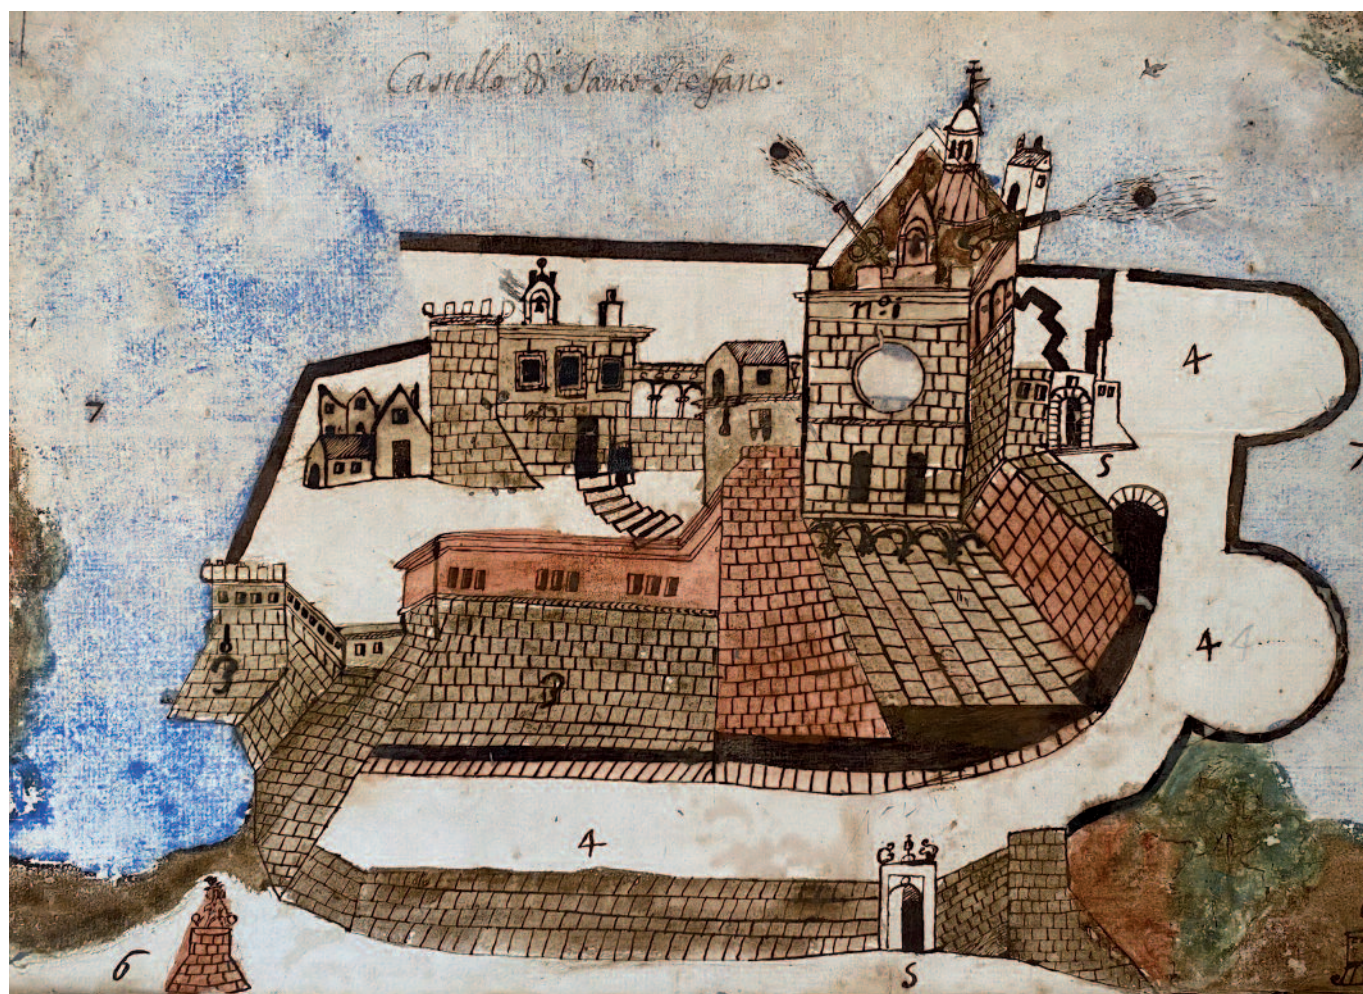 Castello di Santo Stefano.
nº. 1
4
7
7
5
4 4
3
3
4
6
5